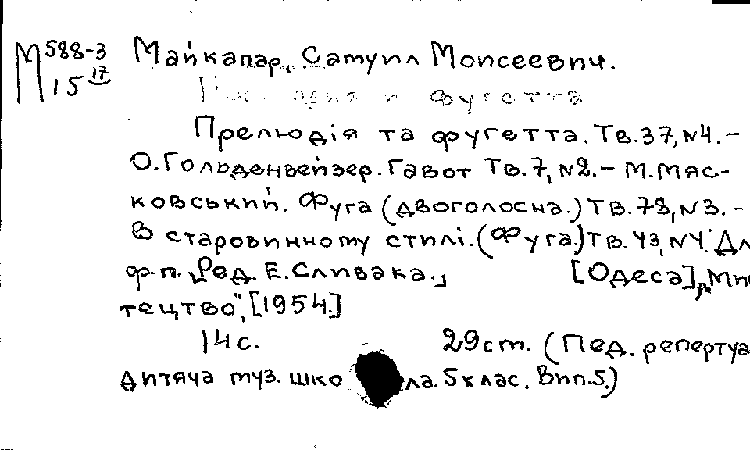 М 588-3 Майкапар, Самуил Моисеевич.
15 17
и фугетта
Прелюдія та фугетта. Тв. 37, №4. –
О. Гольденвейзер. Гавот Тв. 7, №2. – М. Мяс-
ковський. Фуга (двоголосна.) Тв. 78, №3. –
В старовинному стилі. (Фуга.) Тв. 43, №4. Дл
ф-п. „Ред. Е. Сливака." [Одеса], Мис
тецтво", [1954.]
14 с. 29 ст. (Пед. репертуа
дитяча муз. шко ла. 5 клас. Вип. 5.)